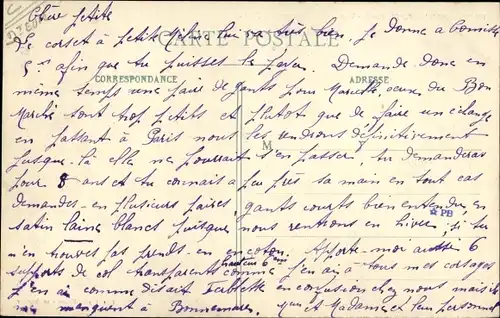 Chère petite
Le corset à petite fille lui va très bien. Je donne à
CARTE POSTALE
5 afin que tu puisses le payer. Demande donc en
CORRESPONDANCE
ADRESSE
même temps une paire de gants pour Marcelle ceux du Bon
Marché sont trop petits et plutôt que de faire un échange
en passant à Paris nous les rendrons définitivement
M
jusque là elle ne pourrait s'en passer, tu demanderas
pour 8 ans et tu connais à peu près sa main en tout cas
demandes en plusieurs paires, gants courts bien entendu, en
PB
satin laine blancs puisque nous rentrons en hiver, si tu
n'en trouves pas prends en coton. Apporte-moi aussi 6
hauteur 6 cm
supports de col transparents comme j'en ai à tous mes corsages
j'en ai comme disait en confusion chez nous mais ici
me manquent à Monsieur et Madame et leur personnel